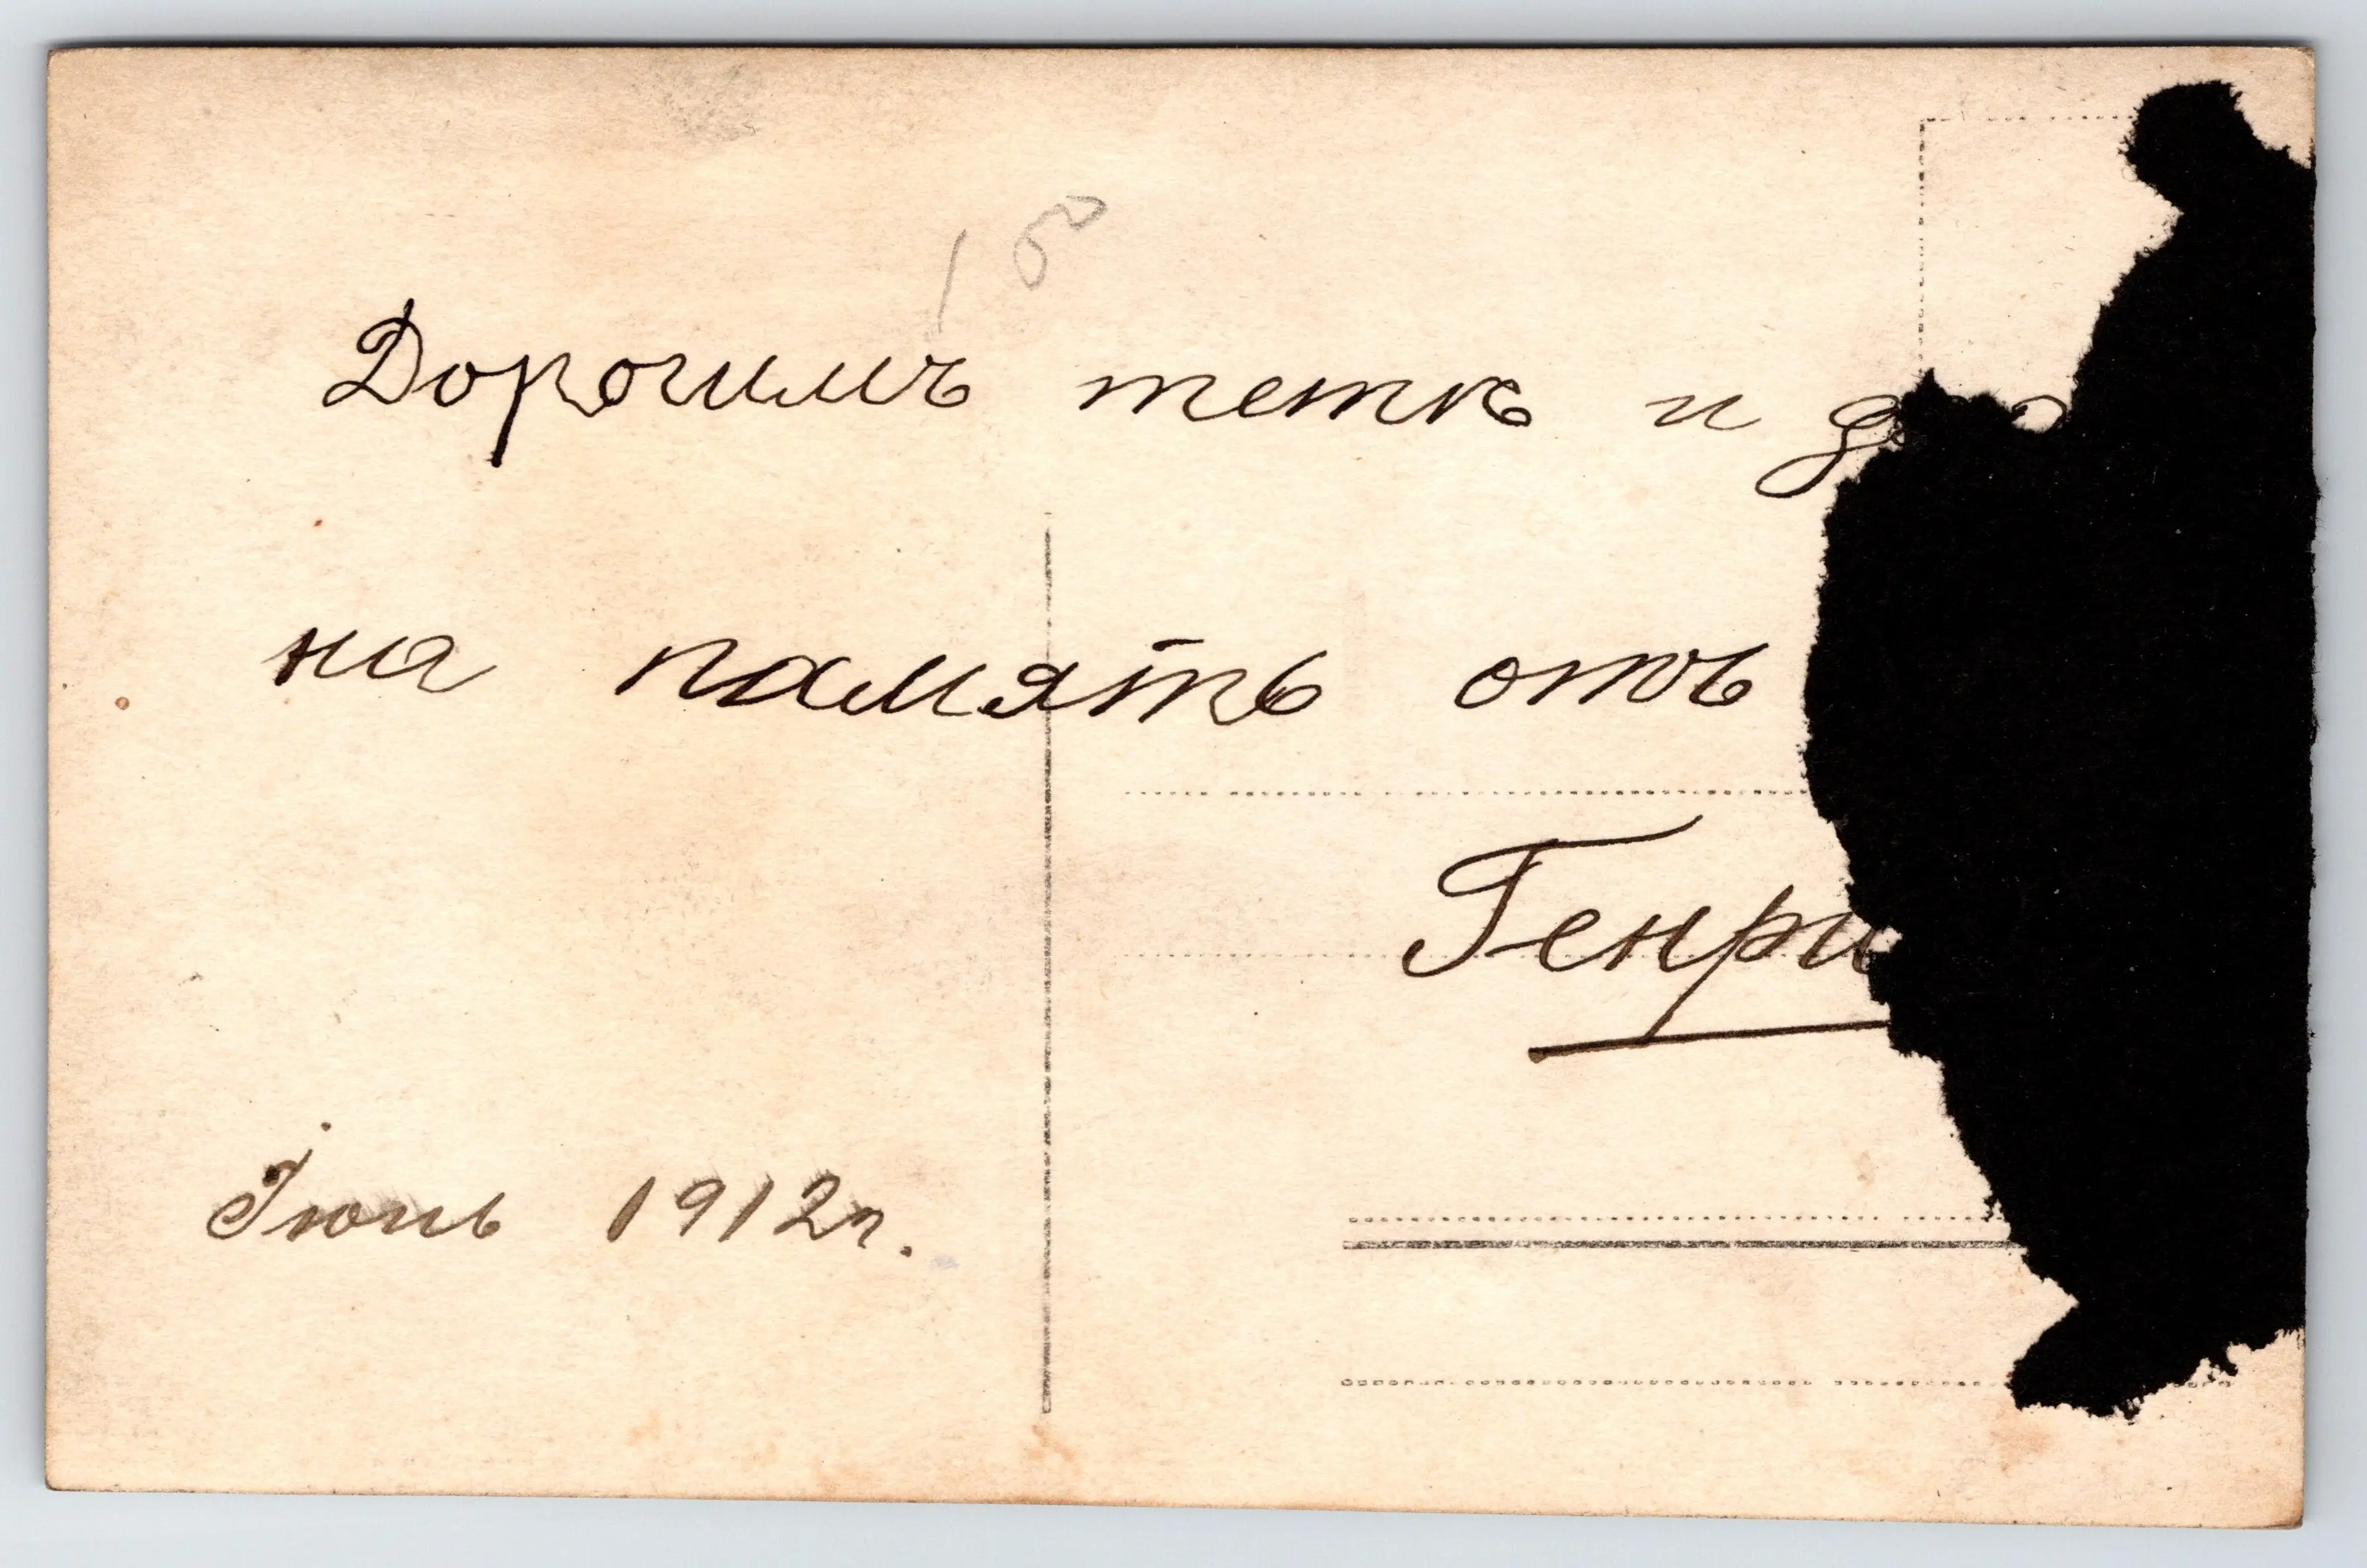 1 50
Дорогимъ тетѣ и д
на память отъ
Генри
Іюнь 1912 г.